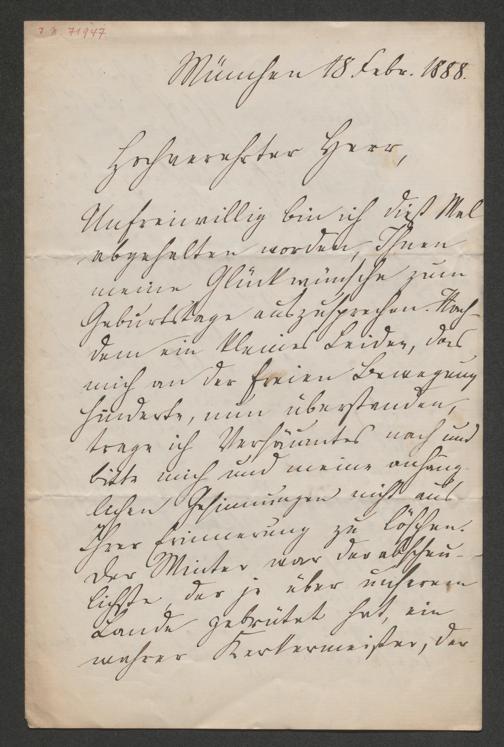 I.N. 71947
München 18 Febr. 1888.
Hochverehrter Herr,
Unfreiwillig bin ich dieß Mal
abgehalten worden, Ihnen
meine Glückwünsche zum
Geburtstage auszusprechen. Nach-
dem ein kleines Leiden, das
mich an der freien Bewegung
hinderte, nun überstanden,
trage ich Versäumtes nach und
bitte mich und meine anhäng-
lichen Gesinnungen nicht aus
Ihrer Erinnerung zu löschen.
Der Winter war der abscheu-
lichste, der je über unserem
Lande gebrütet hat, ein
wahrer Kerkermeister, der